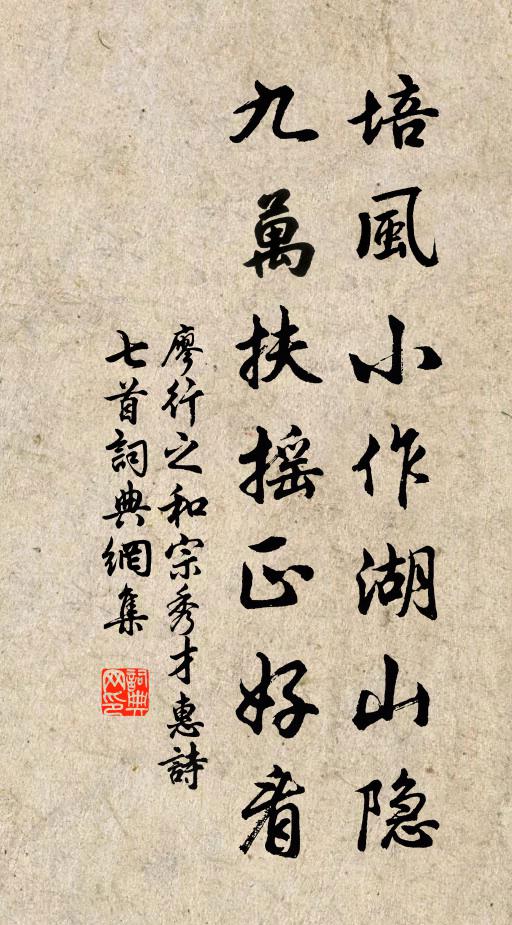 培風小作湖山隐
九萬扶摇正好看
廖行之和宗秀才惠詩
七首詞典網集
詞典网印